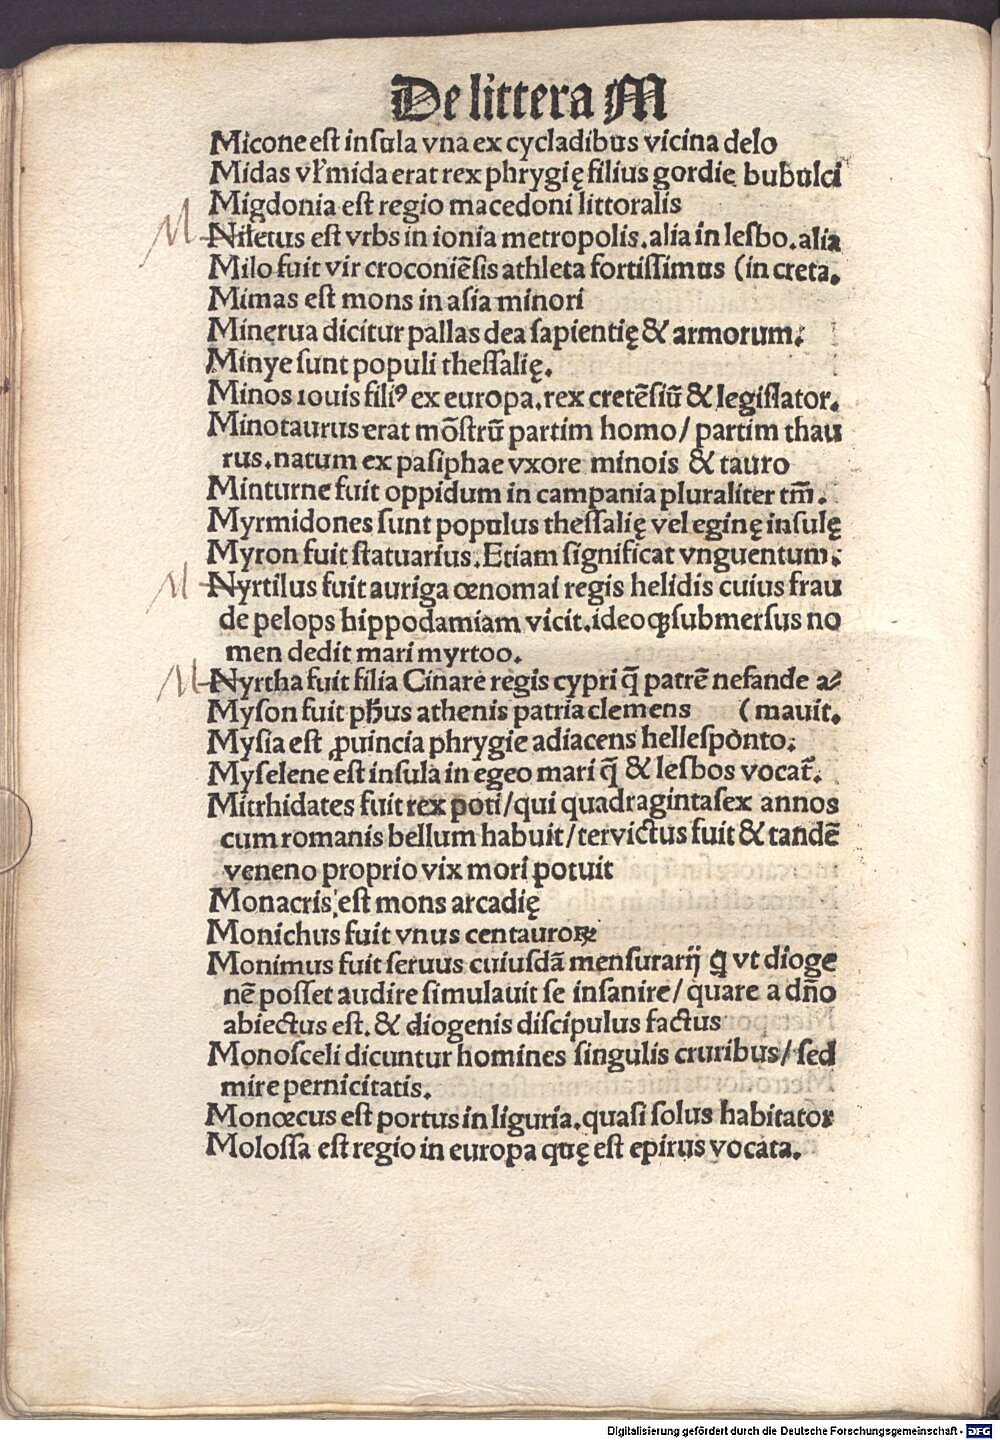 De littera M
Micone est insula vna ex cycladibus vicina delo
Midas vł mida erat rex phrygię filius gordie bubulci
Migdonia est regio macedoni littoralis
M Niletus est vrbs in ionia metropolis.alia in lesbo.alia
Milo fuit vir croconiēsis athleta fortissimus (in creta.
Mimas est mons in asia minori
Minerua dicitur pallas dea sapientię & armorum.
Minye sunt populi thessalię.
Minos iouis fili⁹ ex europa.rex cretēsiū & legislator.
Minotaurus erat mōstrū partim homo/ partim thau
rus.natum ex pasiphae vxore minois & tauro
Minturne fuit oppidum in campania pluraliter tm̄.
Myrmidones sunt populus thessalię vel eginę insulę
Myron fuit statuarius.Etiam significat vnguentum.
M Nyrtilus fuit auriga œnomai regis helidis cuius frau
de pelops hippodamiam vicit.ideoqꝫ submersus no
men dedit mari myrtoo.
M Nyrtha fuit filia Cinare regis cypri q̄ patrē nefande a⸗
Myson fuit ph̄us athenis patria clemens (mauit.
Mysia est ꝓuincia phrygie adiacens hellesponto.
Myselene est insula in egeo mari q̄ & lesbos vocat̄.
Mitrhidates fuit rex poti/qui quadragintasex annos
cum romanis bellum habuit/tervictus fuit & tandē
veneno proprio vix mori potuit
Monacris est mons arcadię
Monichus fuit vnus centauroꝝ
Monimus fuit seruus cuiusdā mensurarij ꝗ vt dioge
nē posset audire simulauit se insanire/ quare a dn̄o
abiectus est.& diogenis discipulus factus
Monosceli dicuntur homines singulis cruribus/ sed
mire pernicitatis.
Monœcus est portus in liguria.quasi solus habitator
Molossa est regio in europa quę est epirus vocata.
Digitalisierung gefördert durch die Deutsche Forschungsgemeinschaft - DFG